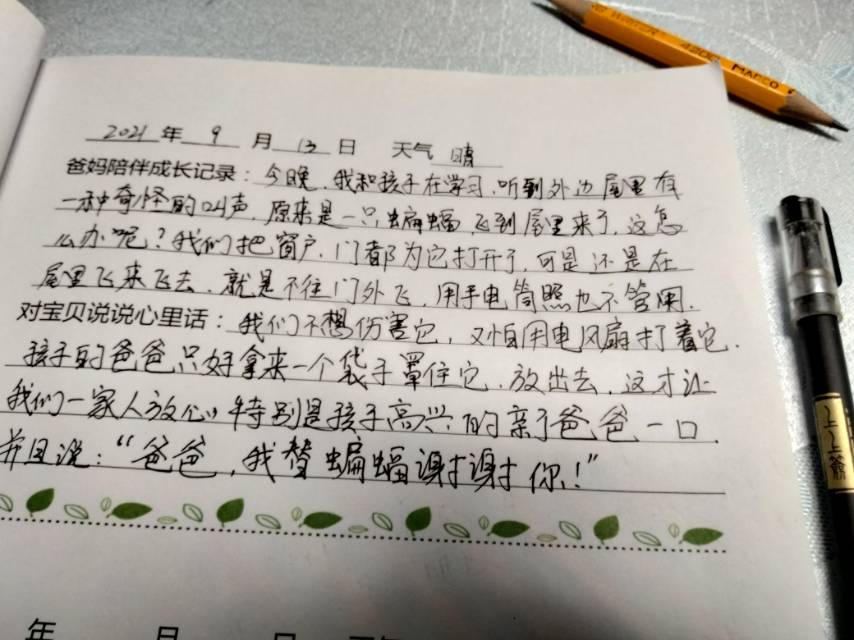 2021年9月13日 天气晴
爸妈陪伴成长记录：今晚，我和孩子在学习，听到外边屋里有
一种奇怪的叫声，原来是一只蝙蝠飞到屋里来了，这怎
么办呢？我们把窗户，门都为它打开了，可是还是在
屋里飞来飞去，就是不往门外飞，用手电筒照也不管用。
对宝贝说说心里话：我们不想伤害它，又怕用电风扇打着它，
孩子的爸爸只好拿来一个袋子罩住它，放出去，这才让
我们一家人放心，特别是孩子高兴的亲了爸爸一口，
并且说：“爸爸，我替蝙蝠谢谢你！”
年 月 日